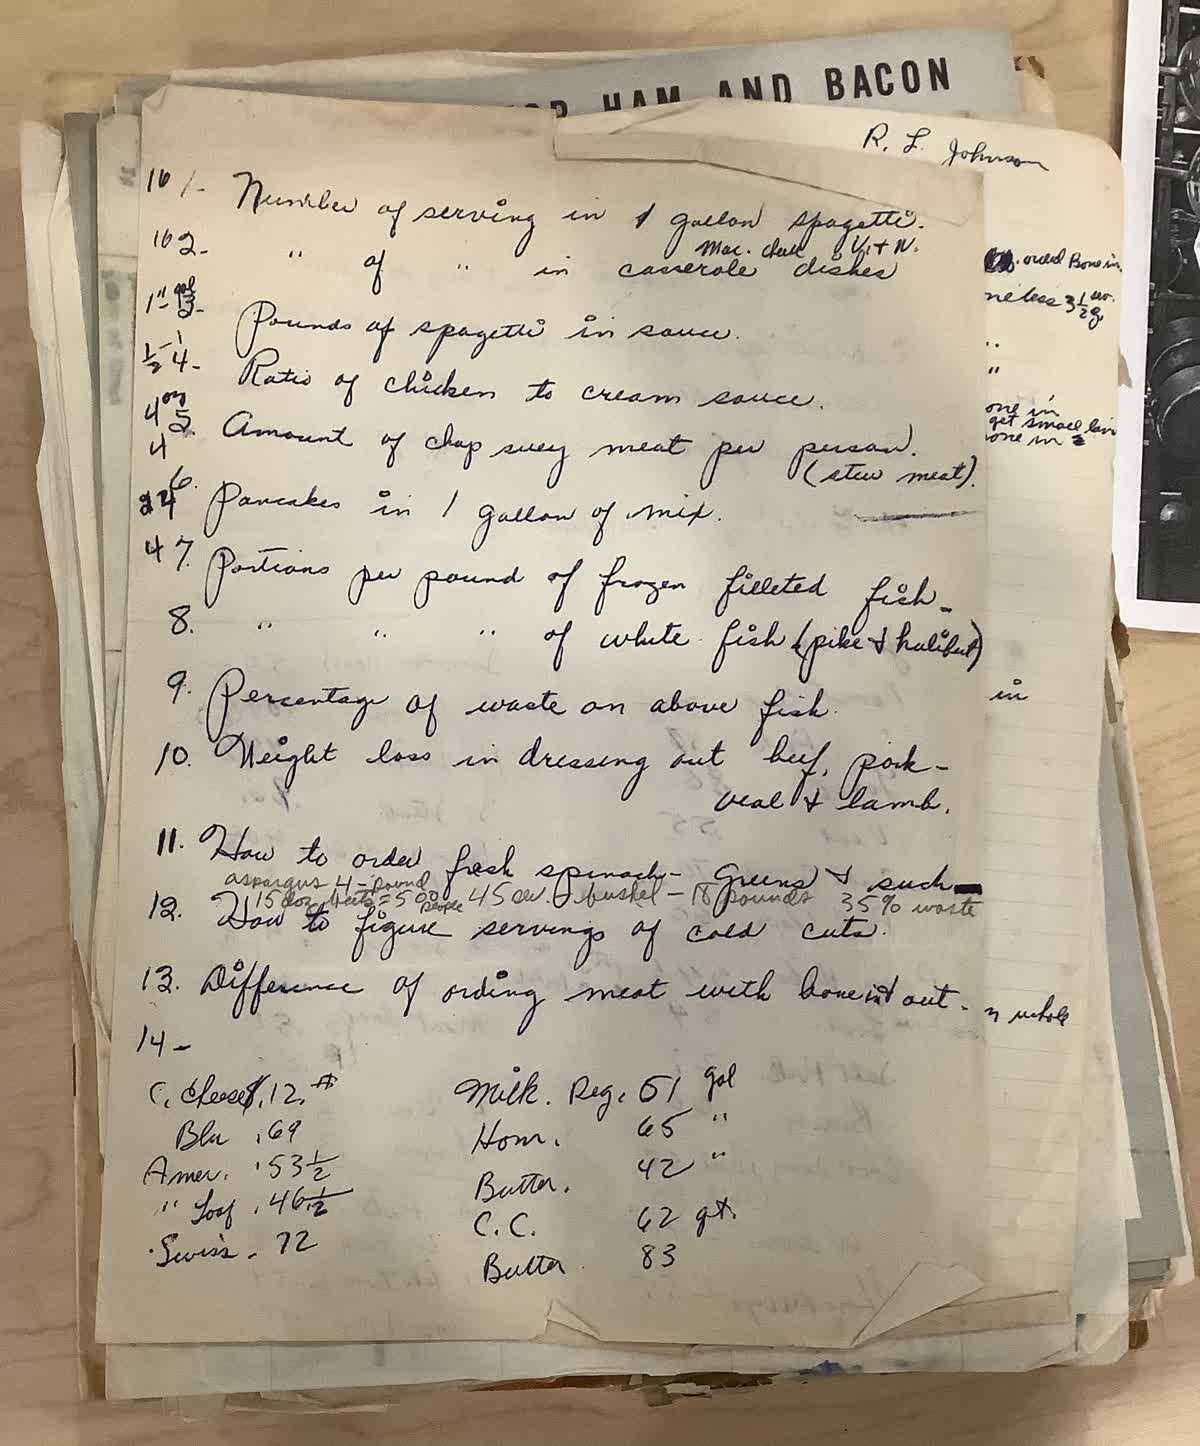 HAM AND BACON
R. L. Johnson
16 1- Number of serving in 1 gallon spagetti.
Mac. chees
16 2- " of " in casserole dishes
1" gal 3- Pounds of spagetti in sauce.
1/2 - 1 4- Ratio of chicken to cream sauce.
4 oz 5. Amount of chop suey meat per person.
4 (stew meat).
24 6. Pancakes in 1 gallon of mix.
4 7. Portions per pound of frozen filleted fish-
8. " " " of white fish (pike & halibut)
9. Percentage of waste on above fish.
10. Weight loss in dressing out beef, pork-
veal & lamb.
11. How to order fresh spinach- Greens & such
aspargus 4-pound
15 doz = 500 people 45 bushel - 18 pounds 35% waste
12. How to figure servings of cold cuts.
13. Difference of ording meat with bone in & out-
14-
C. Cheese .12. #
Blu .69
Amer. .53 1/2
" Loaf .46 1/2
Swiss - 72
Milk. Reg. 51 gal
Hom. 65 "
Butter. 42 "
C. C. 62 qt.
Butter 83
order Bone in
3 1/2
"
"
one in
get small
one in
in
whole